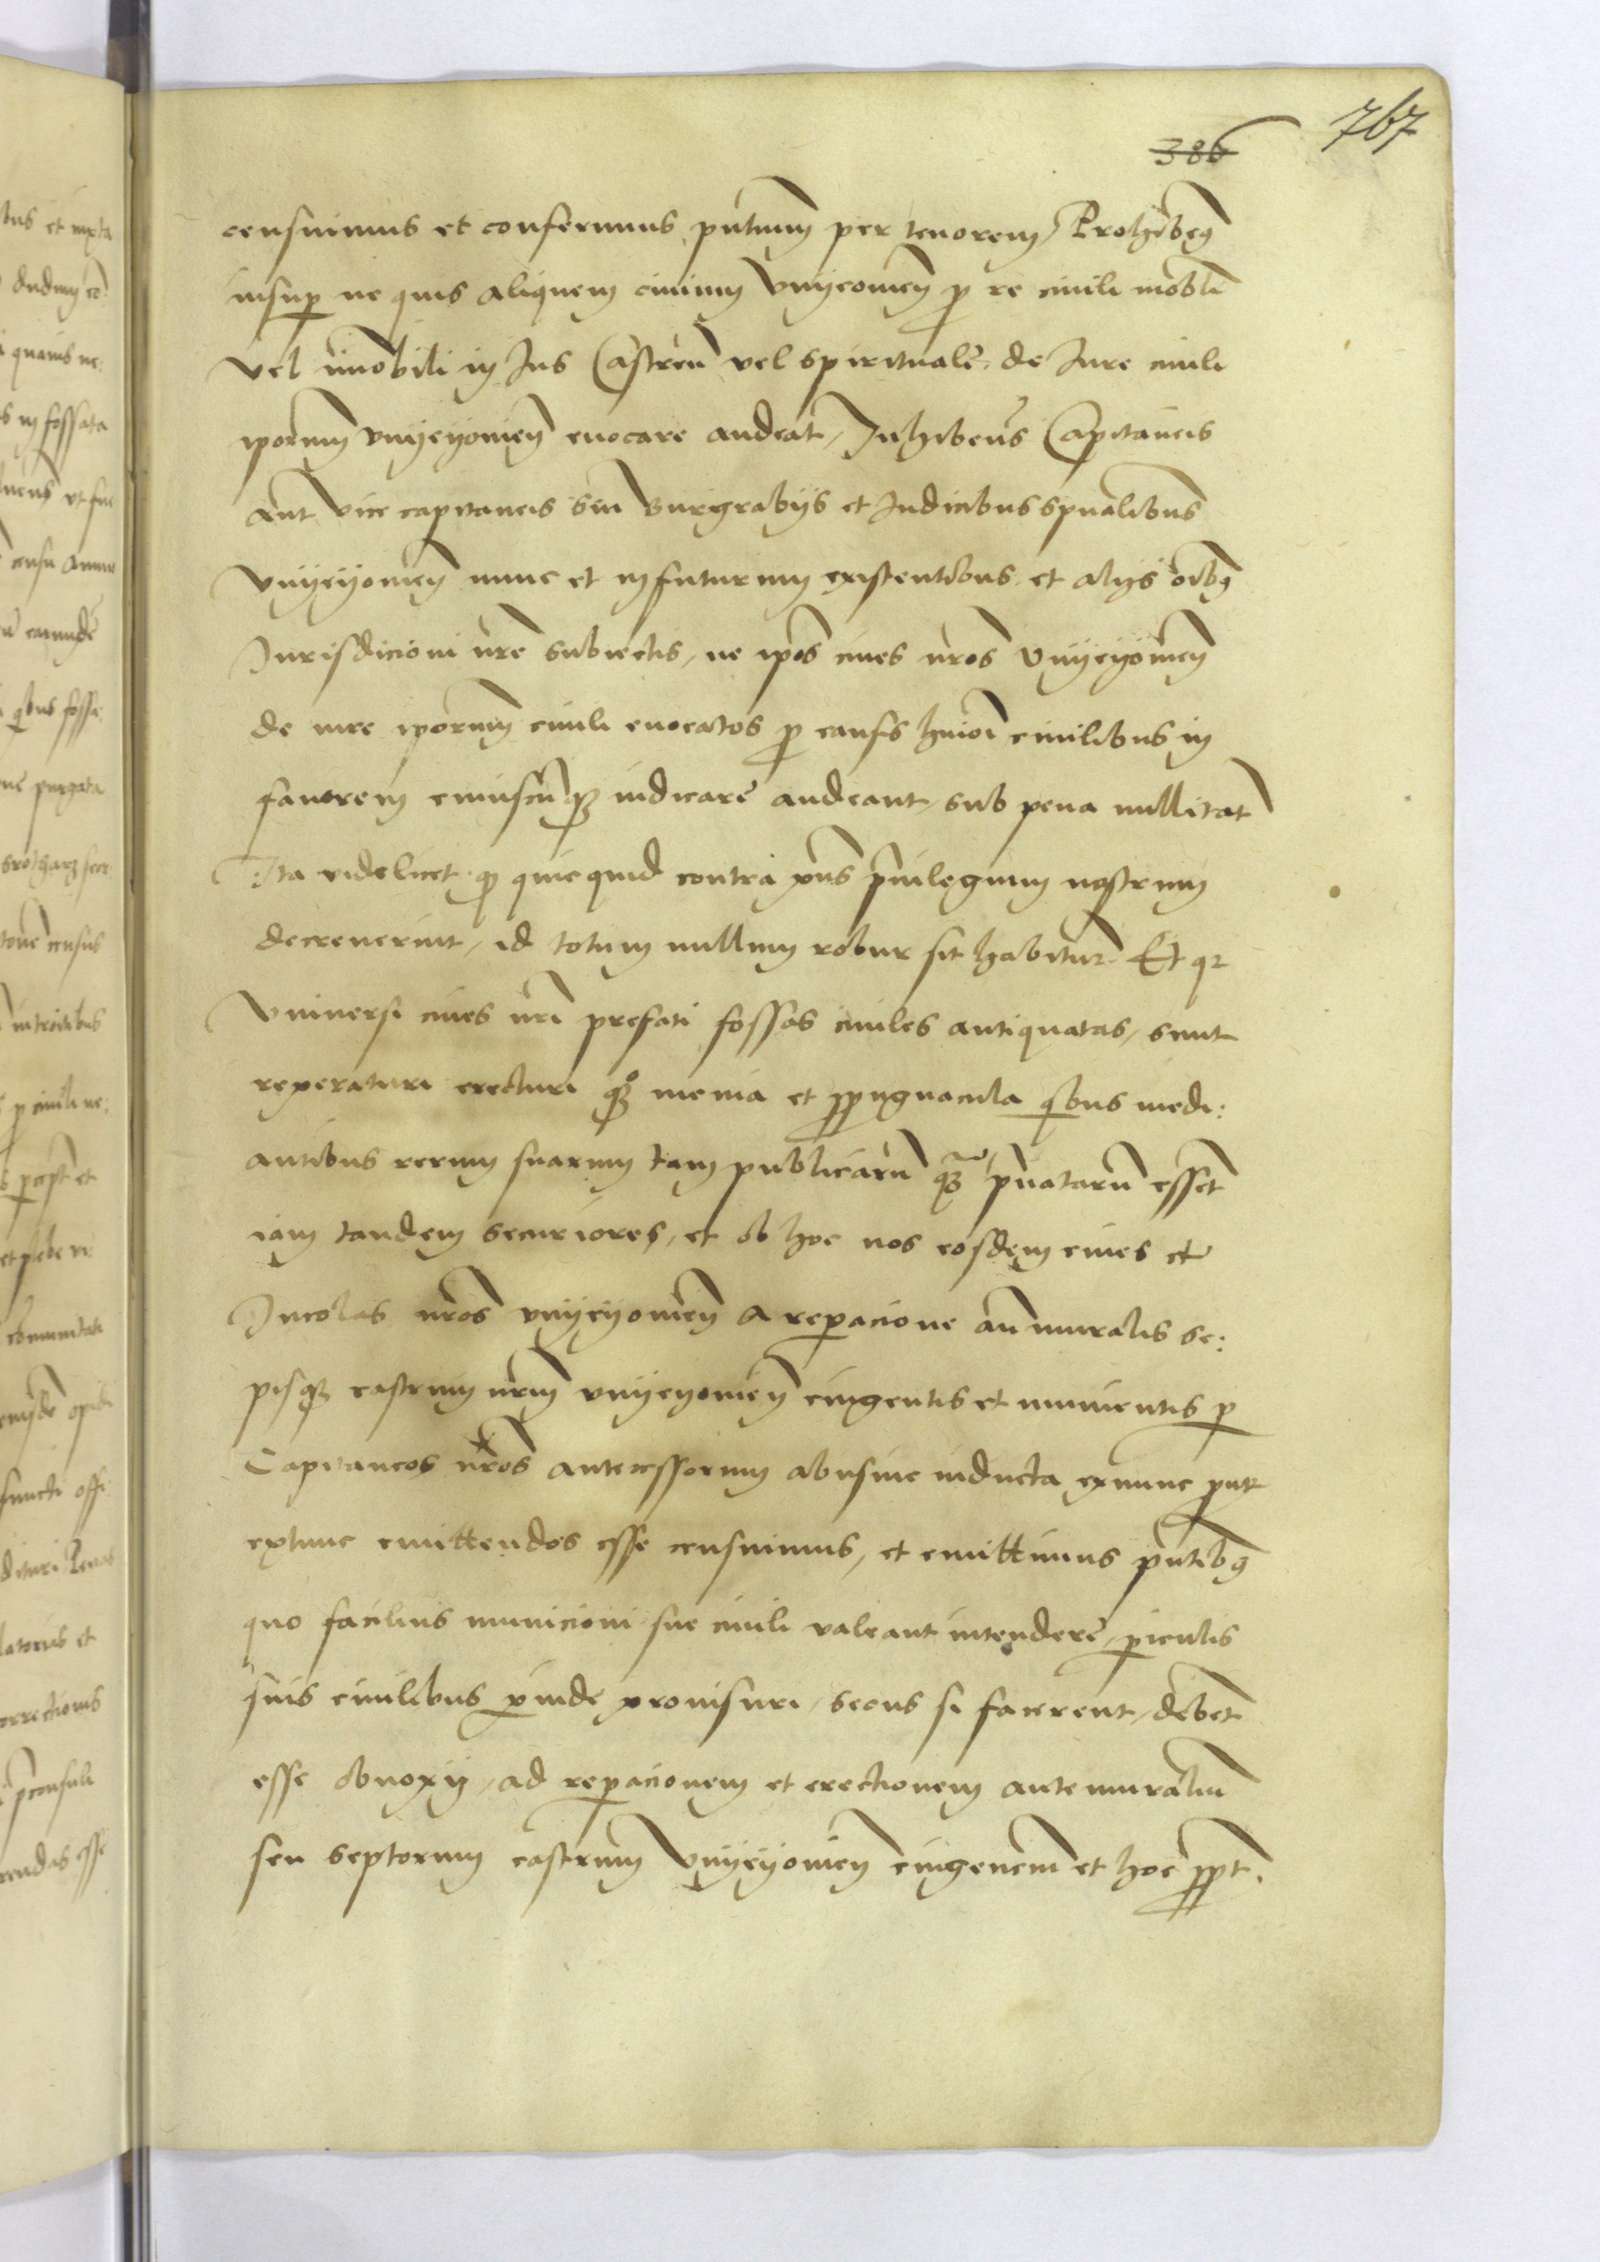 767
386
censuimus et conferimus, pntium per tenorem, Prohibemq
insup ne quis aliquem civium Vnyeyomien p re civili mobli
vel imobili in Ius Castren vel spirituale de Iure civili
ipsorum vnyeyomien evocare audeat, Inhibens Capitaneis
aut vice capitaneis seu Burgrabijs et Iudicibus spualibus
Vnyeyomien nunc et in futurum existentibus et alijs oibq
Iurisdicioni nre subiectis, ne ipos cives nros Vnyeyomien
de iure iporum civili evocatos p causis huioi civilibus in
favorem cuiuscuq iudicare audeant, sub pena nullitat
Ita videlicet q quicquid contra pns privilegium nostrum
decreverint, id totum nullum robur sit habitur Et qr
Vniversi cives nri prefati fossas civiles antiquatas, sunt
reperaturi erecturi q menia et propugnacula qbus medi:
antibus rerum suarum tam publicaru q privataru essent
iam tandem securiores, et ob hoc nos eosdem cives et
Incolas nros vnyeyomien a reparacione antimuralis se:
pisq castrum nrm vnyeyomien cingentis et munientis p
Capitaneos nros antecessorum abusive inducta exnunc prout
extunc emittendos esse censuimus, et emittimus pntibq
quo facilius municioni sue civili valeant intendere, periculis
suis civilibus perinde provisuri, secus si facerent, debent
esse obnoxij, ad reparacionem et erectionem antemuraliu
seu septorum castrum Vnyeyomien cingencium et hoc propt